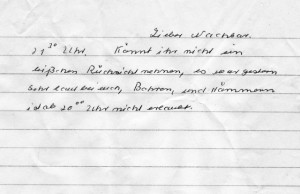 Lieber Nachbar.
21³⁰ Uhr. Könnt ihr nicht ein
bißchen Rücksicht nehmen, es war gestern
sehr laut bei euch, Bohren, und Hämmern
ist ab 20⁰⁰ Uhr nicht erlaubt.